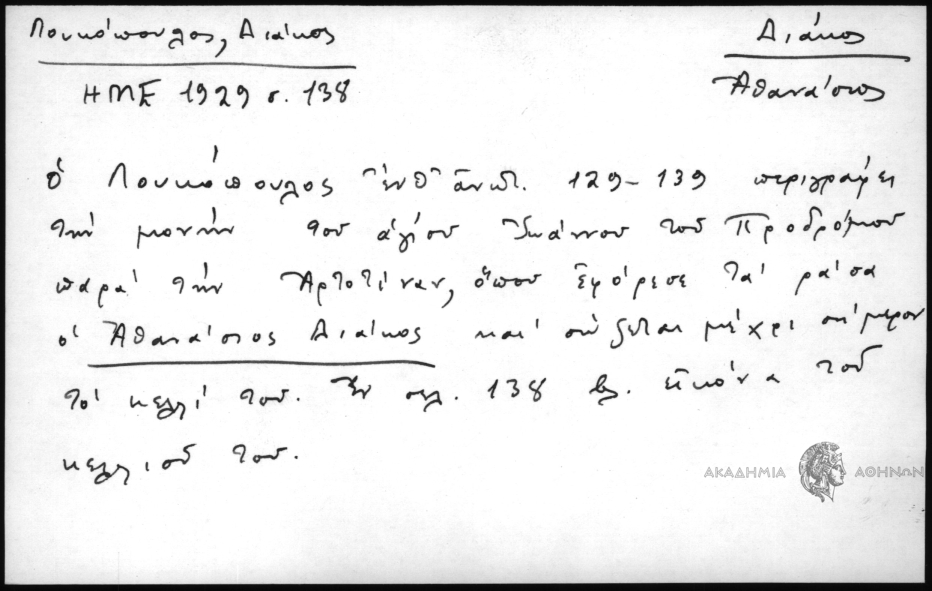 Λουκόπουλος, Διάκος
Διάκος
ΗΜΕ 1929 σ. 138
Ἀθανάσιος
ὁ Λουκόπουλος ἐνθ' ἀνωτ. 129-139 περιγράφει
τὴν μονὴν του ἁγίου Ἰωάννου τοῦ Προδρόμου
παρὰ τὴν Ἀρτοτίναν, ὅπου ἐφόρεσε τὰ ράσα
ὁ Ἀθανάσιος Διάκος καὶ σῴζεται μέχρι σήμερον
τὸ κελλί του. Ἐν σελ. 138 βλ. εἰκόνα τοῦ
κελλιοῦ του.
ΑΚΑΔΗΜΙΑ ΑΘΗΝΩΝ